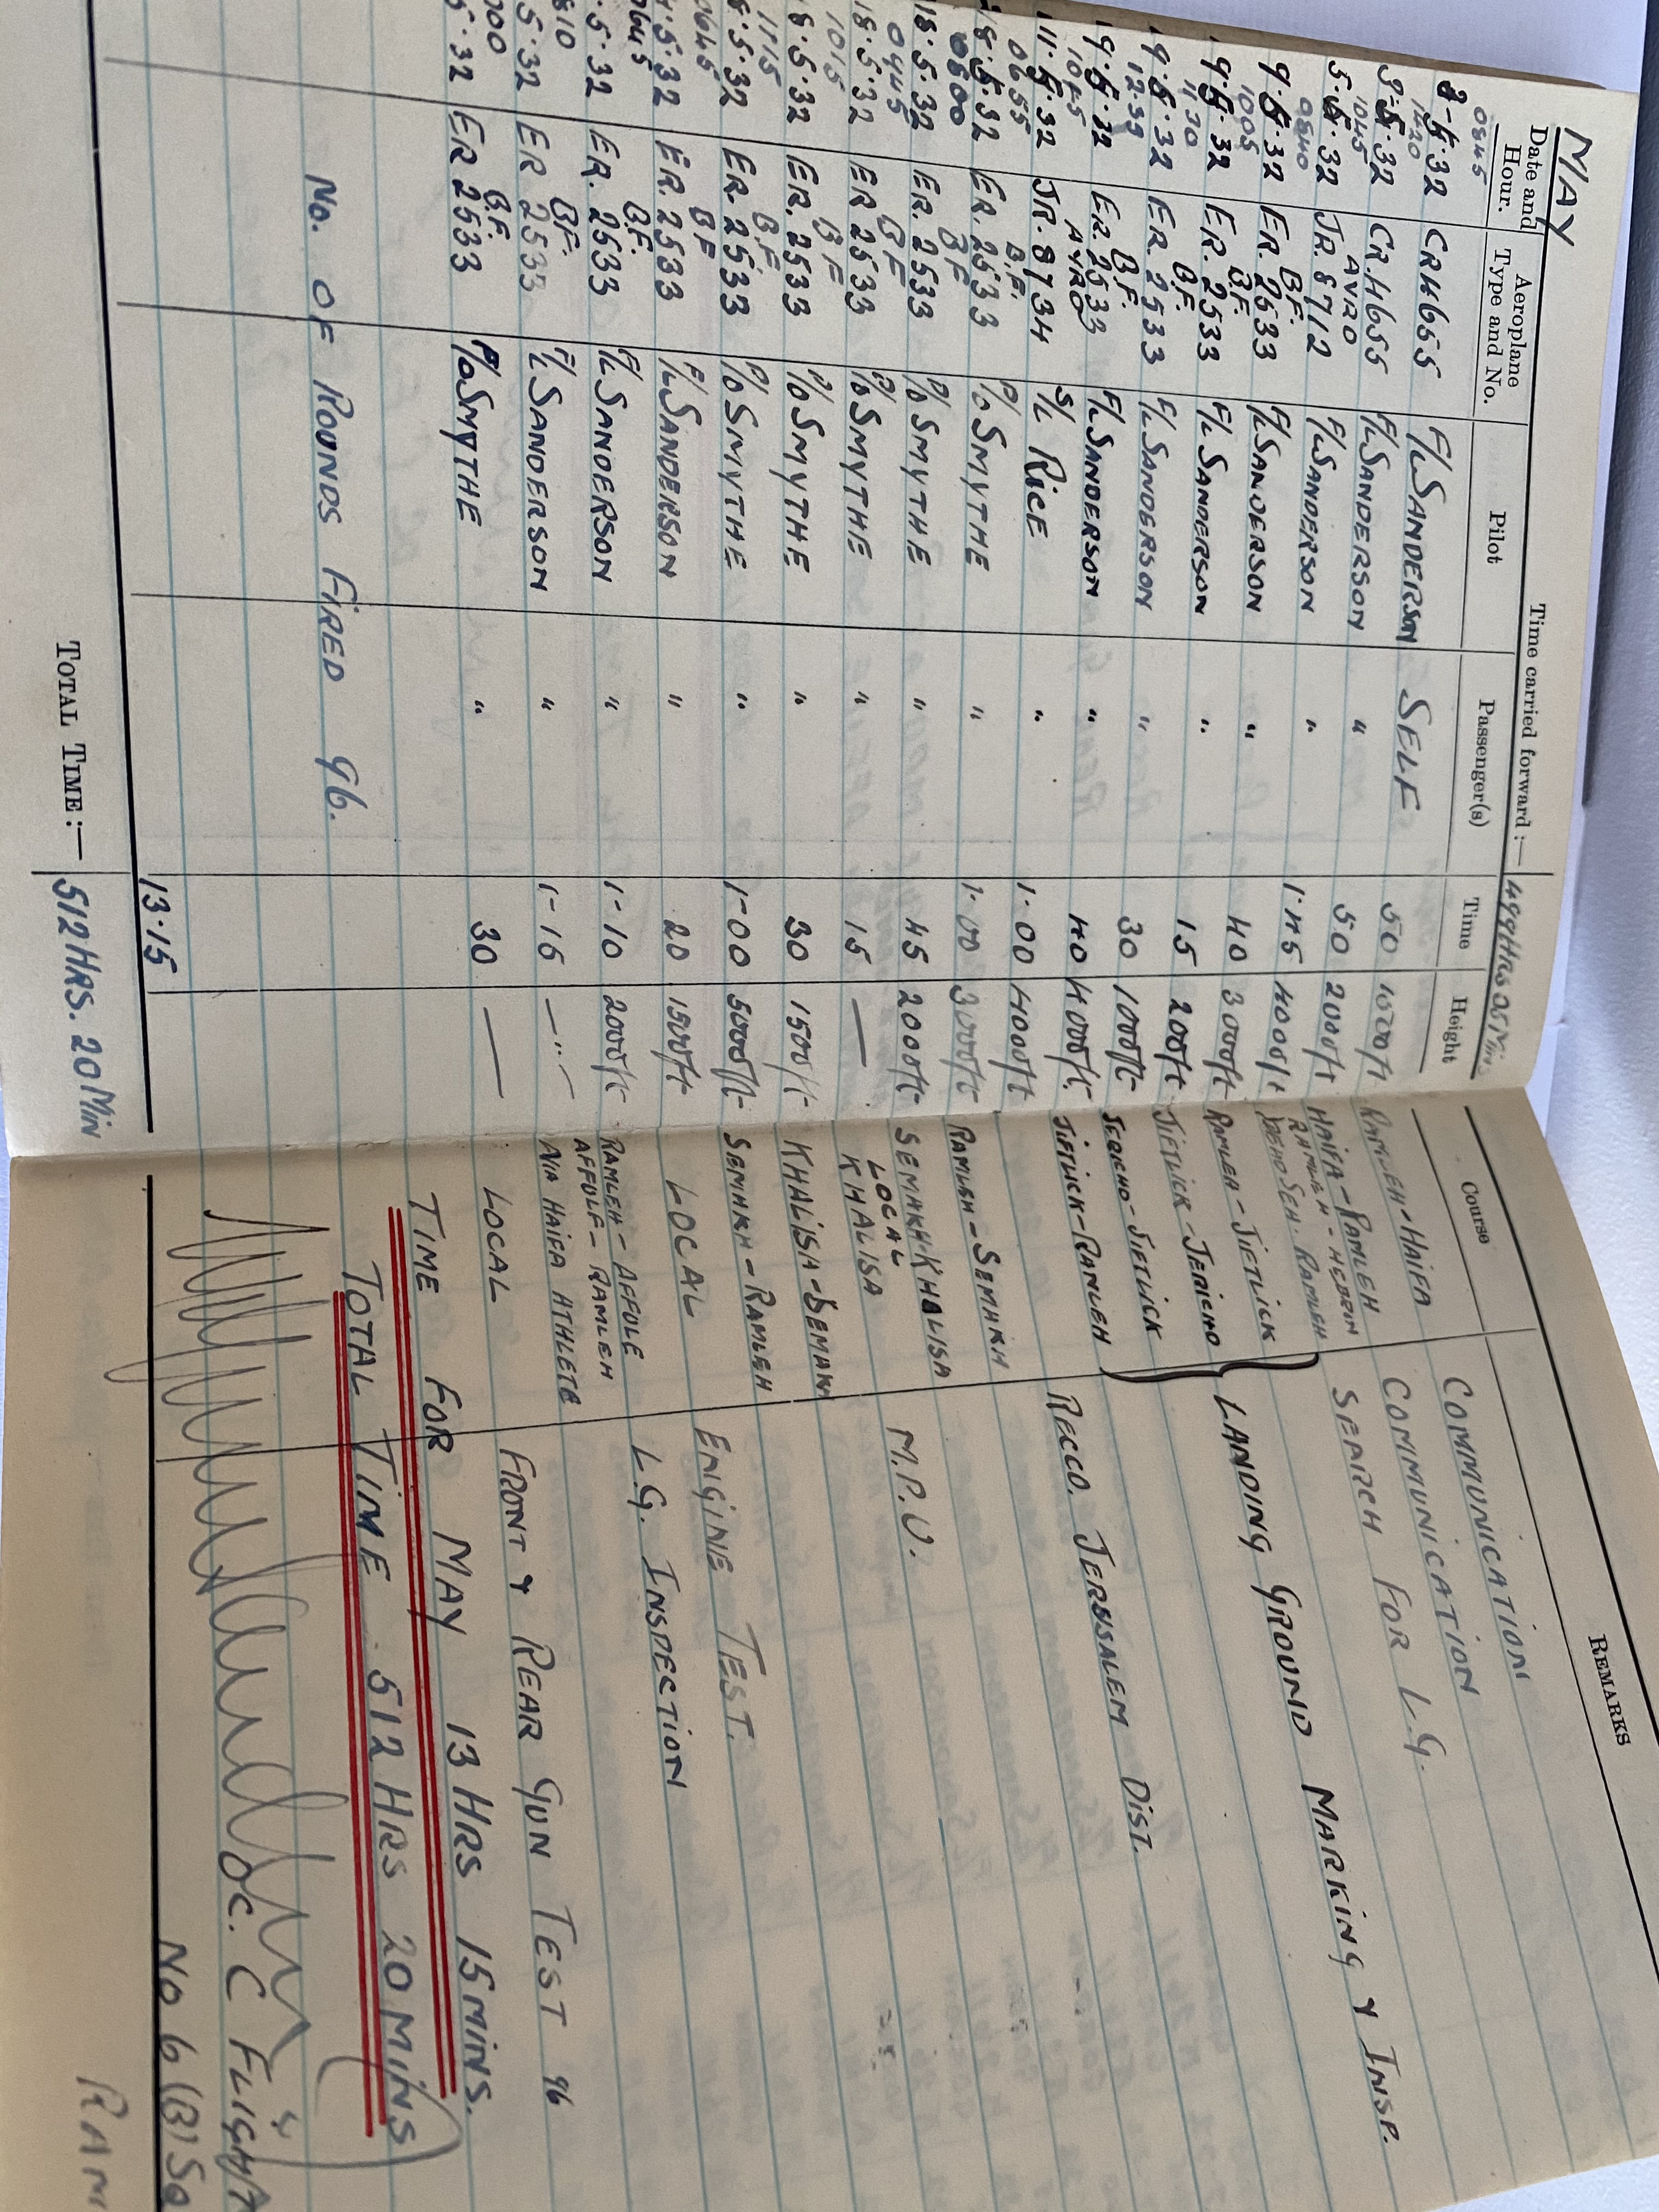 MAY
Time carried forward :— 499 HRS 05 Min
Date and Hour. Aeroplane Type and No. Pilot Passenger(s) Time Height Course REMARKS
0845
3-5-32 CR H655 F/L SANDERSON SELF 50 1500ft RAMLEH-HAIFA COMMUNICATION
1420
3-5-32 CR.H655 F/L SANDERSON " 50 2000ft HAIFA-RAMLEH COMMUNICATION
1045 AVRO RAMLEH-HEBRON
5.5.32 JR.8712 F/L SANDERSON " 1.45 4000ft RAMLEH SEARCH FOR L.G.
0840 B.F.
9.5.32 ER.2533 F/L SANDERSON " 40 3000ft RAMLEH-JIFTLICK
1005 B.F.
9.5.32 ER.2533 F/L SANDERSON " 15 200ft JIFTLICK-JERICHO LANDING GROUND MARKING & INSP.
1130 B.F.
9.5.32 ER.2533 F/L SANDERSON " 30 1000ft JERICHO-JIFTLICK
B.F.
9.5.32 ER.2533 F/L SANDERSON " 40 4000ft. JIFTLICK-RAMLEH
1045 AVRO
11.5.32 JR.8734 S/L RICE " 1.00 4000ft RECCO. JERUSALEM DIST.
0655 B.F.
18.5.32 ER.2533 P/O SMYTHE " 1.00 3000ft RAMLEH-SEMAKH
0800 B.F
18.5.32 ER.2533 P/O SMYTHE " 45 2000ft SEMAKH-KHALISA M.P.U.
0945 B.F LOCAL
18.5.32 ER 2533 P/O SMYTHE " 15 — KHALISA
1015 B F
18.5.32 ER.2533 P/O SMYTHE " 30 1500ft KHALISA-SEMAKH
1115 B.F
ER.2533 P/O SMYTHE " 1-00 5000ft SEMAKH-RAMLEH
0645 B F
5.32 ER.2533 F/L SANDERSON " 20 1500ft LOCAL ENGINE TEST.
0645 B.F. RAMLEH-AFFULE
5.32 ER.2533 F/L SANDERSON " 1-10 2000ft AFFULE-RAMLEH L.G. INSPECTION
810 B.F.
5.32 ER 2533 F/L SANDERSON " 1-15 —"— VIA HAIFA ATHLETE
000 B.F.
5.32 ER 2533 P/O SMYTHE " 30 — LOCAL FRONT & REAR GUN TEST 96
TIME FOR MAY 13 HRS 15 MINS.
TOTAL TIME 512 HRS 20 MINS
No. OF ROUNDS FIRED 96.
OC. C FLIGHT
13.15
No 6 (B) Sq
TOTAL TIME:— 512 HRS. 20 Min
RAM